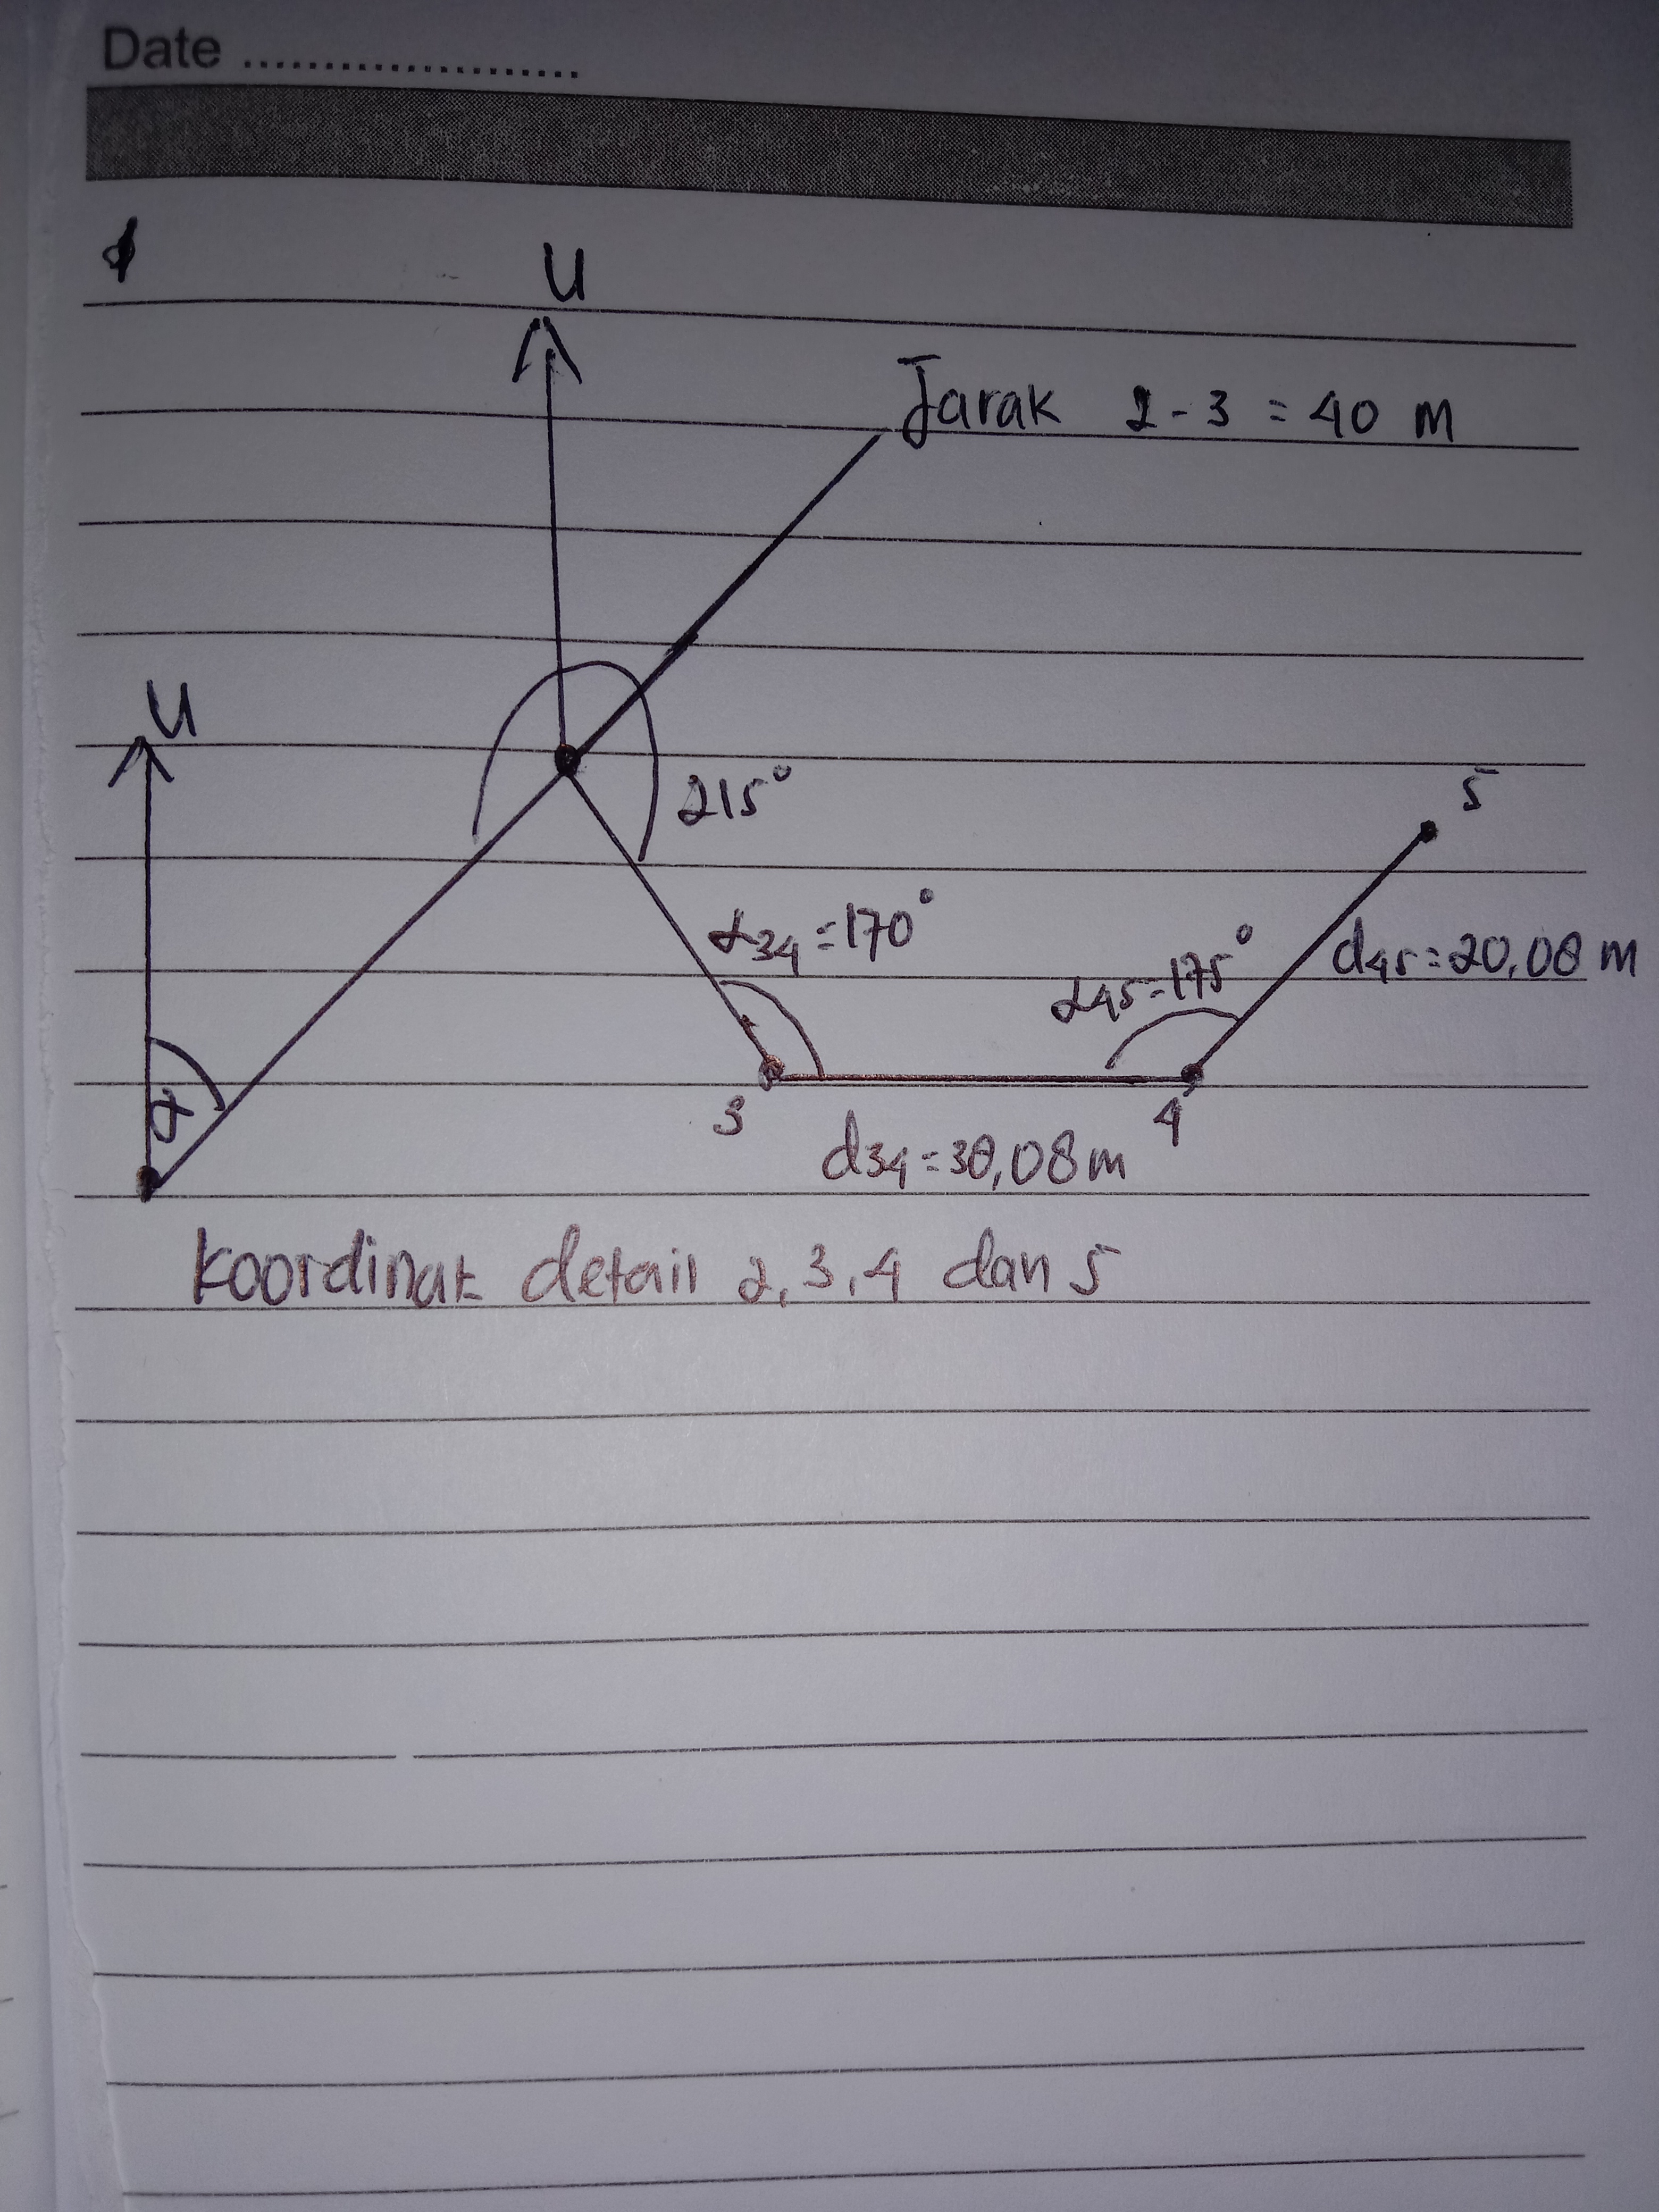 Date .....................
U
Jarak 2-3 = 40 m
U
215°
5
α34=170°
α45=175°
d45=20,08 m
α
3
4
d34=30,08m
koordinat detail 2,3,4 dan 5